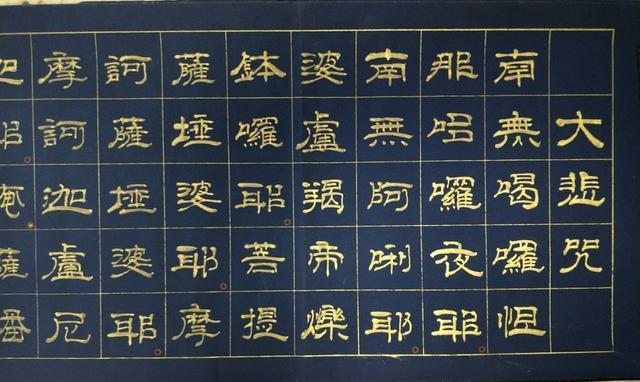 大悲咒
南無喝囉怛
那哆囉夜耶
南無阿唎耶
婆盧羯帝爍
缽囉耶菩提
薩埵婆耶摩
訶薩埵婆耶
摩訶迦盧尼
薩